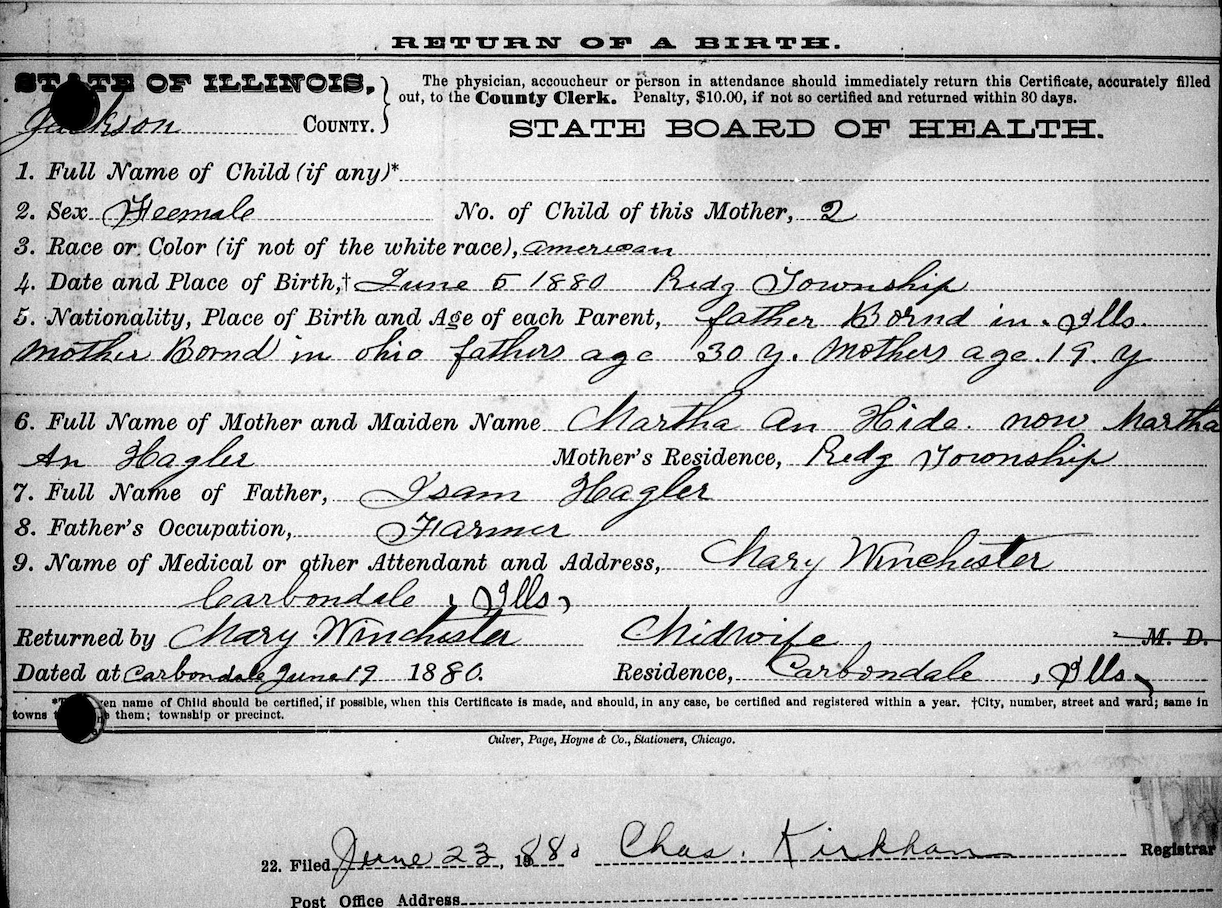 RETURN OF A BIRTH.
STATE OF ILLINOIS,
The physician, accoucheur or person in attendance should immediately return this Certificate, accurately filled
out, to the County Clerk. Penalty, $10.00, if not so certified and returned within 30 days.
Jackson COUNTY.
STATE BOARD OF HEALTH.
1. Full Name of Child (if any)*
2. Sex Feemale No. of Child of this Mother, 2
3. Race or Color (if not of the white race), american
4. Date and Place of Birth,† June 5 1880 Redg Township
5. Nationality, Place of Birth and Age of each Parent, father Bornd in Ills.
Mother Bornd in ohio fathers age 30 y. Mothers age. 19. y
6. Full Name of Mother and Maiden Name Martha An Hide. now Martha
An Hagler Mother's Residence, Redg Township
7. Full Name of Father, Isam Hagler
8. Father's Occupation, Farmer
9. Name of Medical or other Attendant and Address, Mary Winchester
Carbondale, Ills,
Returned by Mary Winchester Midwife M. D.
Dated at Carbondale June 19 1880. Residence, Carbondale, Ills.
name of Child should be certified, if possible, when this Certificate is made, and should, in any case, be certified and registered within a year. †City, number, street and ward; same in
towns them; township or precinct.
Culver, Page, Hoyne & Co., Stationers, Chicago.
22. Filed June 23, 1880 Chas. Kirkham Registrar
Post Office Address